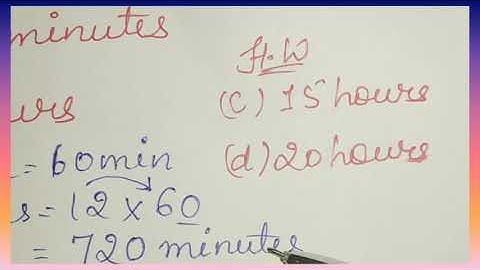 minutes
H.W
(C) 15 hours
= 60 min
(d) 20 hours
s = 12 x 60
= 720 minutes